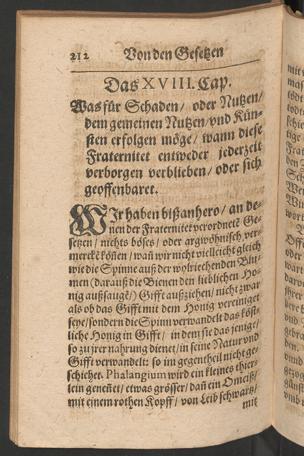 212 Von den Gesetzen
Das XVIII. Cap.
Was für Schaden / oder Nutzen /
dem gemeinen Nutzen / vnd Kün-
sten erfolgen möge / wann diese
Fraternitet entweder jederzeit
verborgen verblieben / oder sich
geoffenbaret.
WIr haben bißanhero / an de-
nen der Fraternitet verordnete Ge-
setzen / nichts böses / oder argwöhnisch ver-
merckē köñen / wañ wir nicht vielleicht gleich
wie die Spinne auß der wolriechenden Blu-
men (darauß die Bienen den lieblichen Ho-
nig außsaugē) Gifft außziehen / nicht zwar
als ob das Gifft mit dem Honig vereiniget
seye / sondern die Spinn verwandelt das köst-
liche Honig in Gifft / in dem sie das jenige /
so zu jrer nahrung dienet / in seine Natur vnd
Gifft verwandelt: so im gegentheil nicht ge-
schiehet. Phalangium wird ein kleines thier-
lein geneñet / etwas grösser / dañ ein Omeiß /
mit einem rothen Kopff / von Leib schwartz /
mit